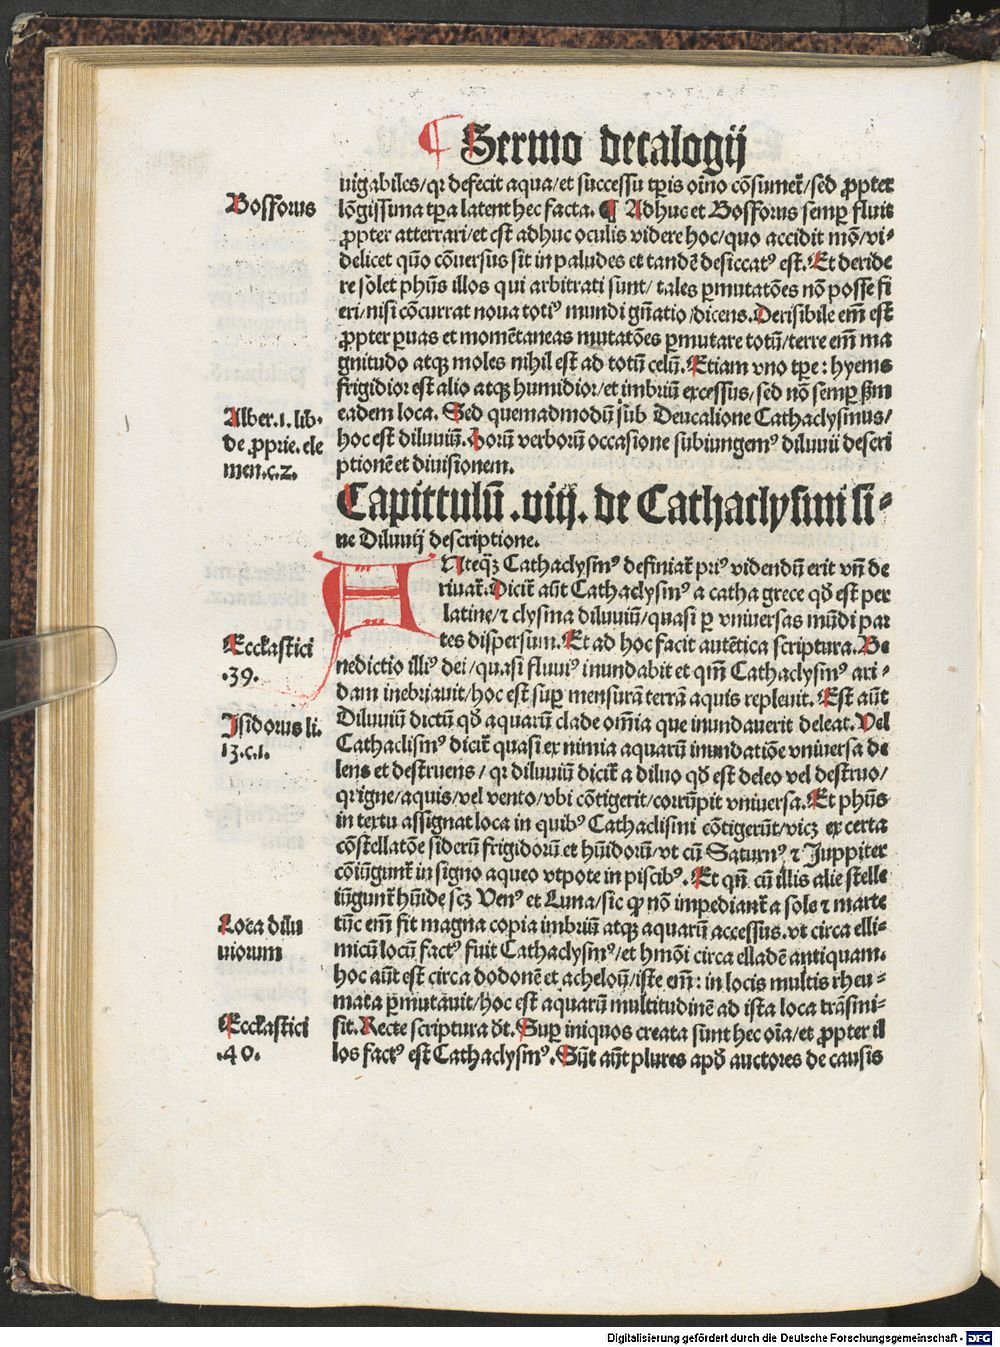 ¶ Sermo decalogij
uigabiles/qꝛ defecit aqua/et successu tꝑis oı̄no cōsumeɫ/sed ꝓpter
Bosforus
lōgissima tꝑa latent hec facta. ¶ Adhuc et Bosforus semꝑ fluit
ꝓpter atterrari/et est adhuc oculis videre hoc/quo accidit mō/vi⸗
delicet quō cōuersus sit in paludes et tandē desiccatꝰ est. Et deride
re solet phūs illos qui arbitrati sunt/ tales ꝑmutatōes nō posse fi
eri/nisi cōcurrat noua totiꝰ mundi gn̄atio/dicens. Derisibile em̄ est
ꝓpter ꝑuas et momētaneas mutatōes ꝑmutare totū/terre em̄ ma
gnitudo atqꝫ moles nihil est ad totū celū. Etiam vno tꝑe: hyems
frigidior est alio atqꝫ humidior/et imbriū excessus/sed nō semꝑ ẜm
Alber.1. lib.
de ꝓprie. ele
men.c.2.
eadem loca. Sed quemadmodū sub Deucalione Cathaclysmus/
hoc est diluuiū. Horū verborū occasione subiungemꝰ diluuii descri
ptionē et diuisionem.
Capittulū .viij. de Cathaclysmi si⸗
ne Diluuij descriptione.
ANteqꝫ̄ Cathaclysmꝰ definiaɫ priꝰ videndū erit vn̄ de
riuaɫ. Diciɫ aūt Cathaclysmꝰ a catha grece qđ est per
latine/⁊ clysma diluuiū/quasi ꝑ vniuersas mūdi par
tes dispersum. Et ad hoc facit autētica scriptura. Be
Ecclastici
.39.
nedictio illiꝰ dei/quasi fluuiꝰ inundabit et qm̄ Cathaclysmꝰ ari⸗
dam inebriauit/hoc est suꝑ mensurā terrā aquis repleuit. Est aūt
Isidorus li.
13.c.1.
Diluuiū dictū qđ aquarū clade om̄ia que inundauerit deleat. Vel
Cathaclismꝰ diciɫ quasi ex nimia aquarū inundatiōe vniuersa de
lens et destruens / qꝛ diluuiū diciɫ a diluo qđ est deleo vel destruo/
qꝛ igne/aquis/vel vento/vbi cōtigerit/corrūpit vniuersa. Et phūs
in textu assignat loca in quibꝰ Cathaclismi cōtigerūt/vicꝫ ex certa
cōstellatōe siderū frigidorū et hūidorū/vt cū Saturnꝰ ⁊ Juppiter
cōiūgunɫ in signo aqueo vtpote in piscibꝰ. Et qn̄ cū illis alie stelle
iūgunɫ hūide scꝫ Venꝰ et Luna/sic qꝙ nō impedianɫ a sole ⁊ marte
Loca dilu
uiorum
tūc em̄ fit magna copia imbriū atqꝫ aquarū accessus. vt circa elli⸗
micū locū factꝰ fuit Cathaclysmꝰ/et hmōi circa elladē antiquam.
hoc aūt est circa dodonē et acheloū/iste em̄: in locis multis rheu⸗
mata ꝑmutauit/hoc est aquarū multitudinē ad ista loca trāsmi⸗
Ecclastici
.40.
sit. Recte scriptura đt. Suꝑ iniquos creata sunt hec oı̄a/et ꝓpter il
los factꝰ est Cathaclysmꝰ. Sūt aūt plures apđ auctores de causis
Digitalisierung gefördert durch die Deutsche Forschungsgemeinschaft - DFG